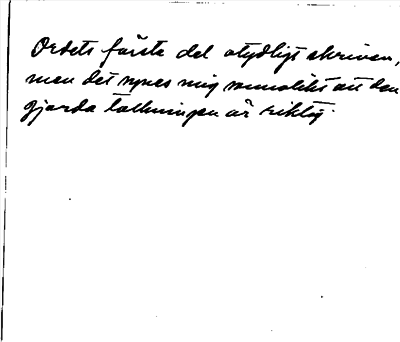 Ordets första del otydligt skriven,
men det synes mig sannolikt att den
gjorda tolkningen är riktig.